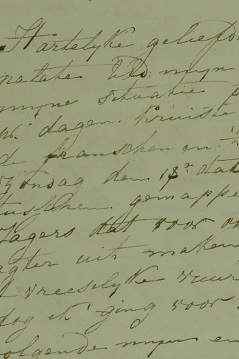 Hartelyke geliefde
mijn
myne situatie
dagen
de franschen om
Zondag den 13e dat
tusschen gemappe
Jagers dat voor on
egter uit maken
t vreeselyke vuur
dog ik ging voor
volgende myn en